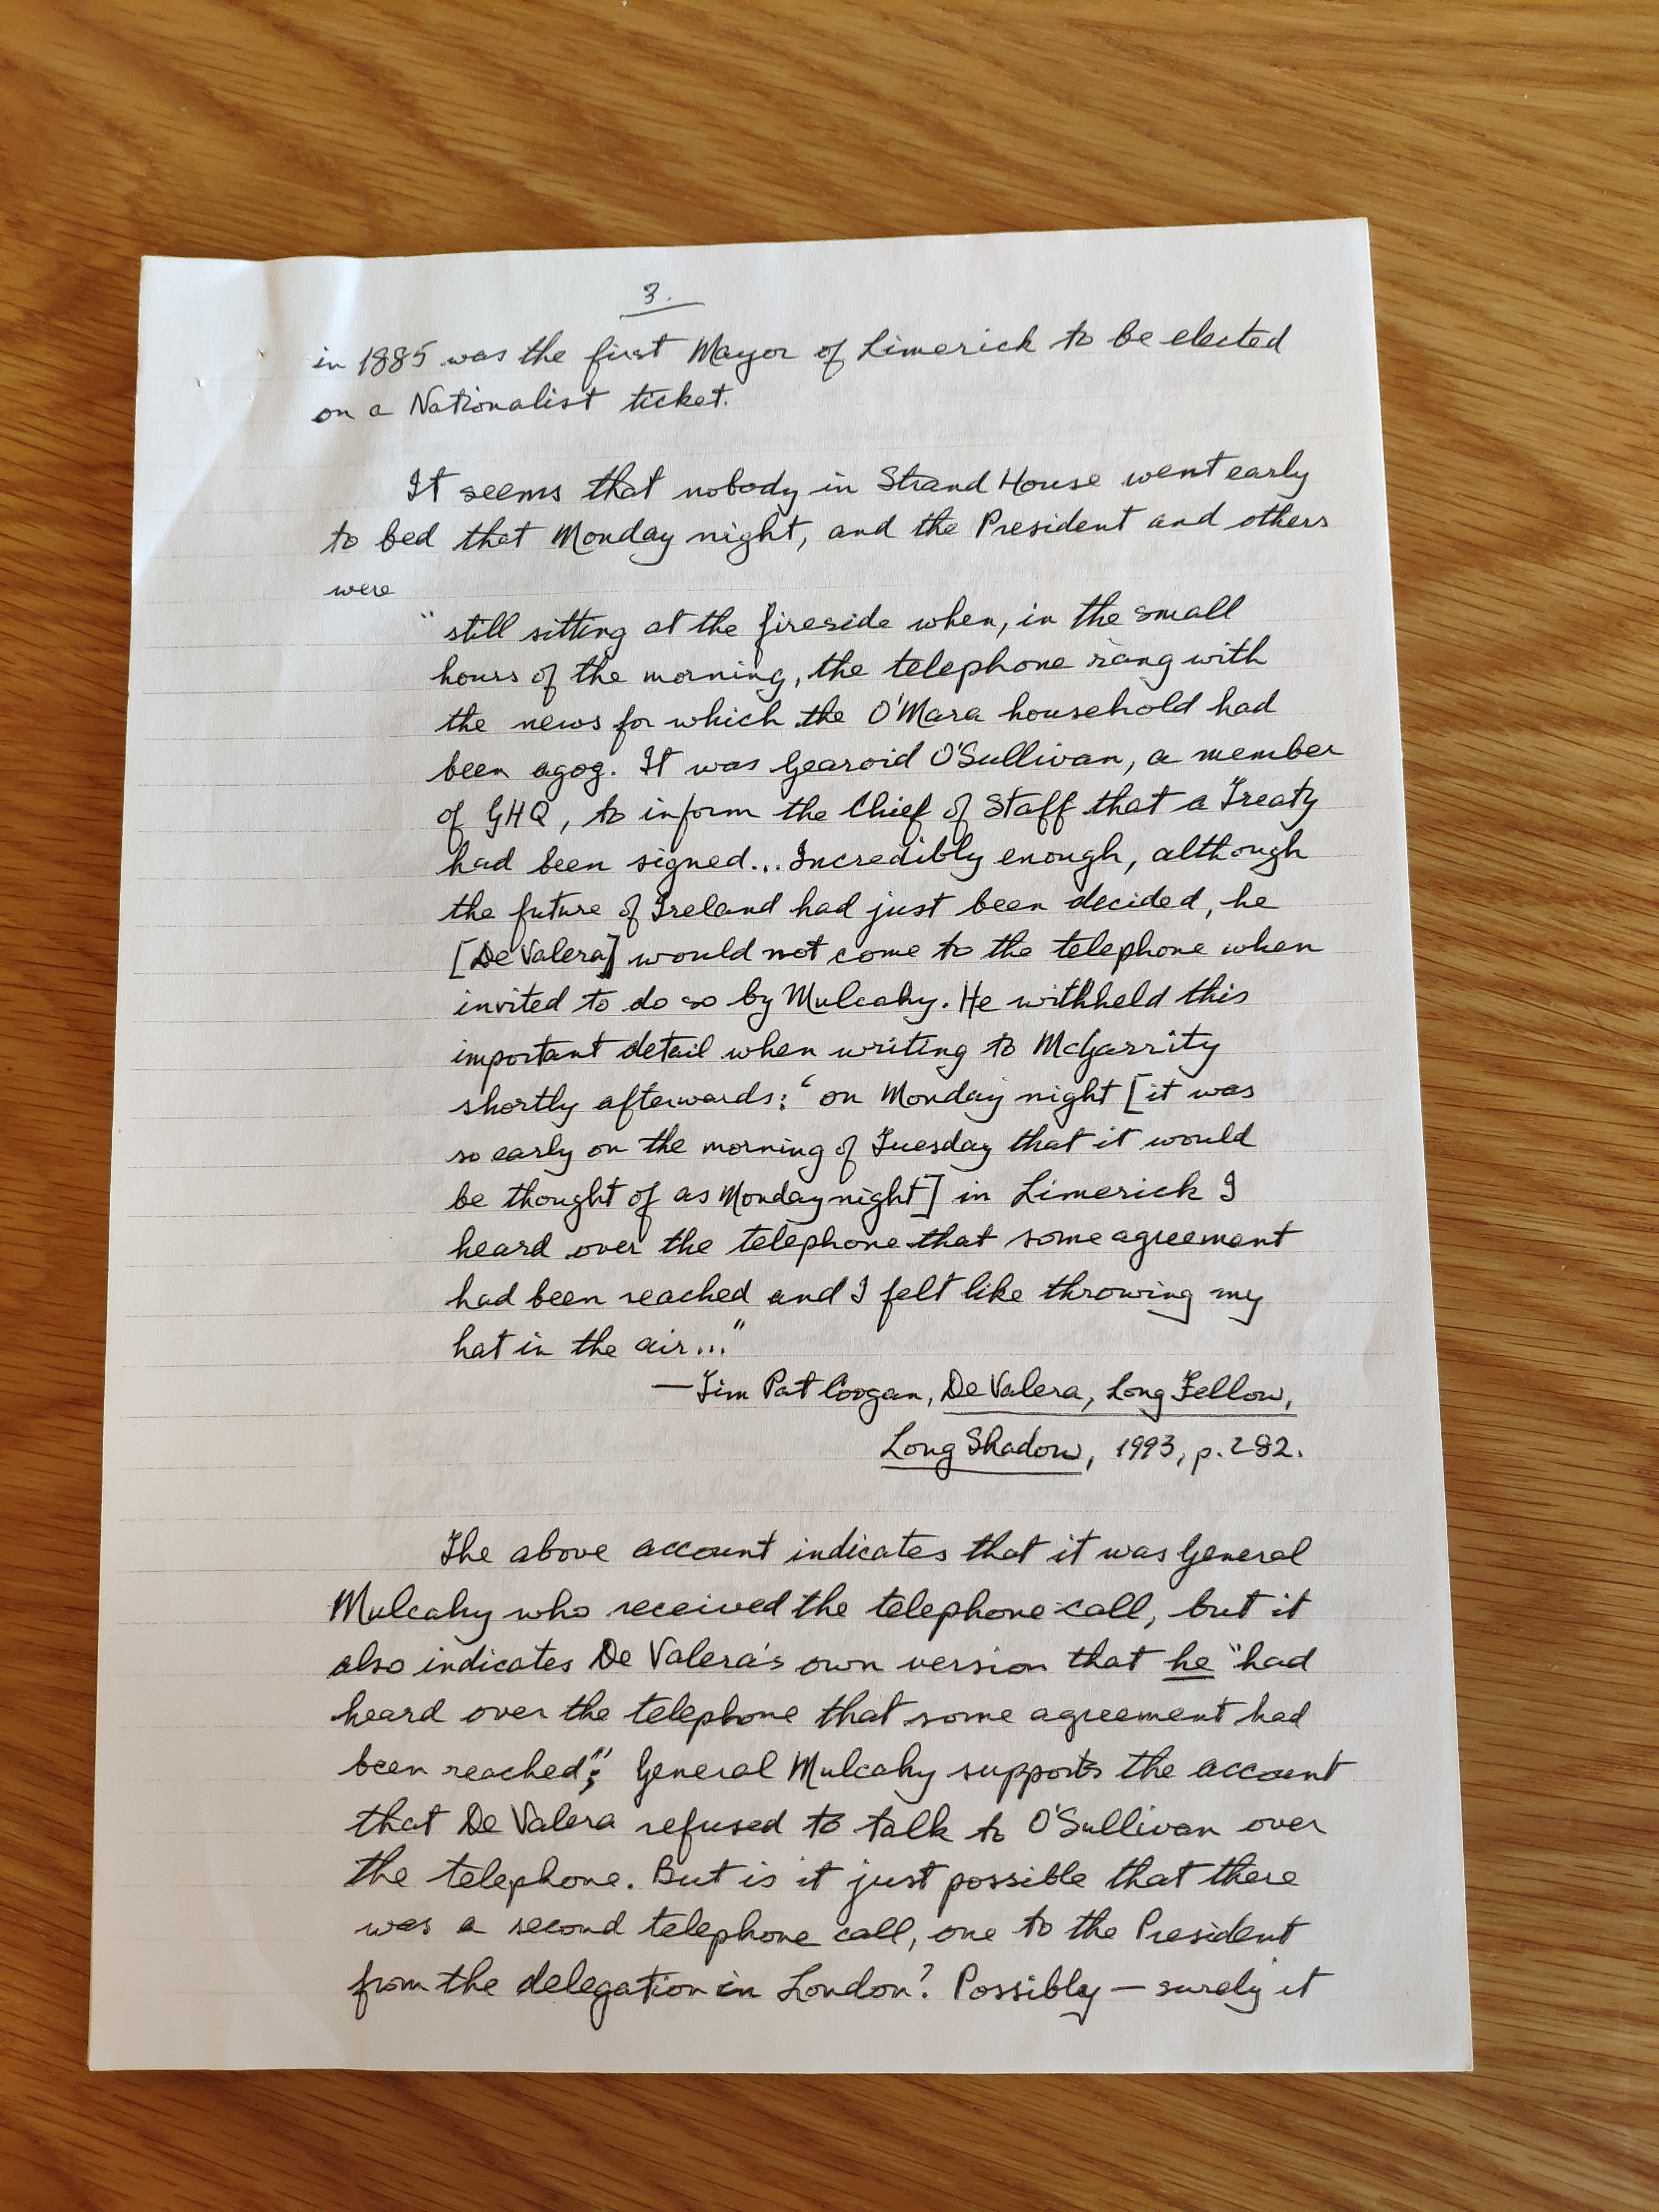 3.
in 1885 was the first Mayor of Limerick to be elected
on a Nationalist ticket.
It seems that nobody in Strand House went early
to bed that Monday night, and the President and others
were
"still sitting at the fireside when, in the small
hours of the morning, the telephone rang with
the news for which the O'Mara household had
been agog. It was Gearoid O'Sullivan, a member
of GHQ, to inform the Chief of Staff that a Treaty
had been signed... Incredibly enough, although
the future of Ireland had just been decided, he
[De Valera] would not come to the telephone when
invited to do so by Mulcahy. He withheld this
important detail when writing to McGarrity
shortly afterwards: 'on Monday night [it was
so early on the morning of Tuesday that it would
be thought of as Monday night] in Limerick I
heard over the telephone that some agreement
had been reached and I felt like throwing my
hat in the air..."
—Tim Pat Coogan, De Valera, Long Fellow,
Long Shadow, 1993, p. 282.
The above account indicates that it was General
Mulcahy who received the telephone call, but it
also indicates De Valera's own version that he "had
heard over the telephone that some agreement had
been reached"; General Mulcahy supports the account
that De Valera refused to talk to O'Sullivan over
the telephone. But is it just possible that there
was a second telephone call, one to the President
from the delegation in London? Possibly — surely it